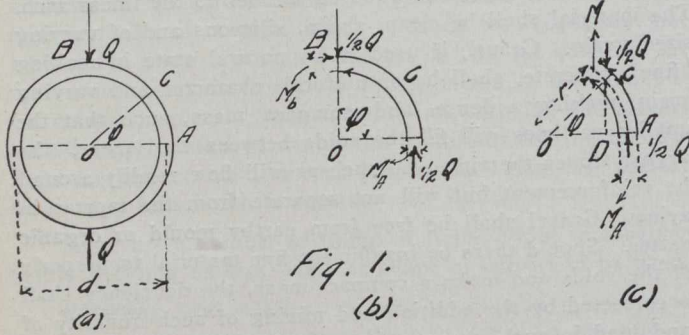 B Q
C
φ
O A
Q
d
(a).
B ½Q
C
M_b
φ
O
M_A ½Q
Fig. 1.
(b).
M
½Q
C
r
φ
O D A
½Q
M_A
(c)